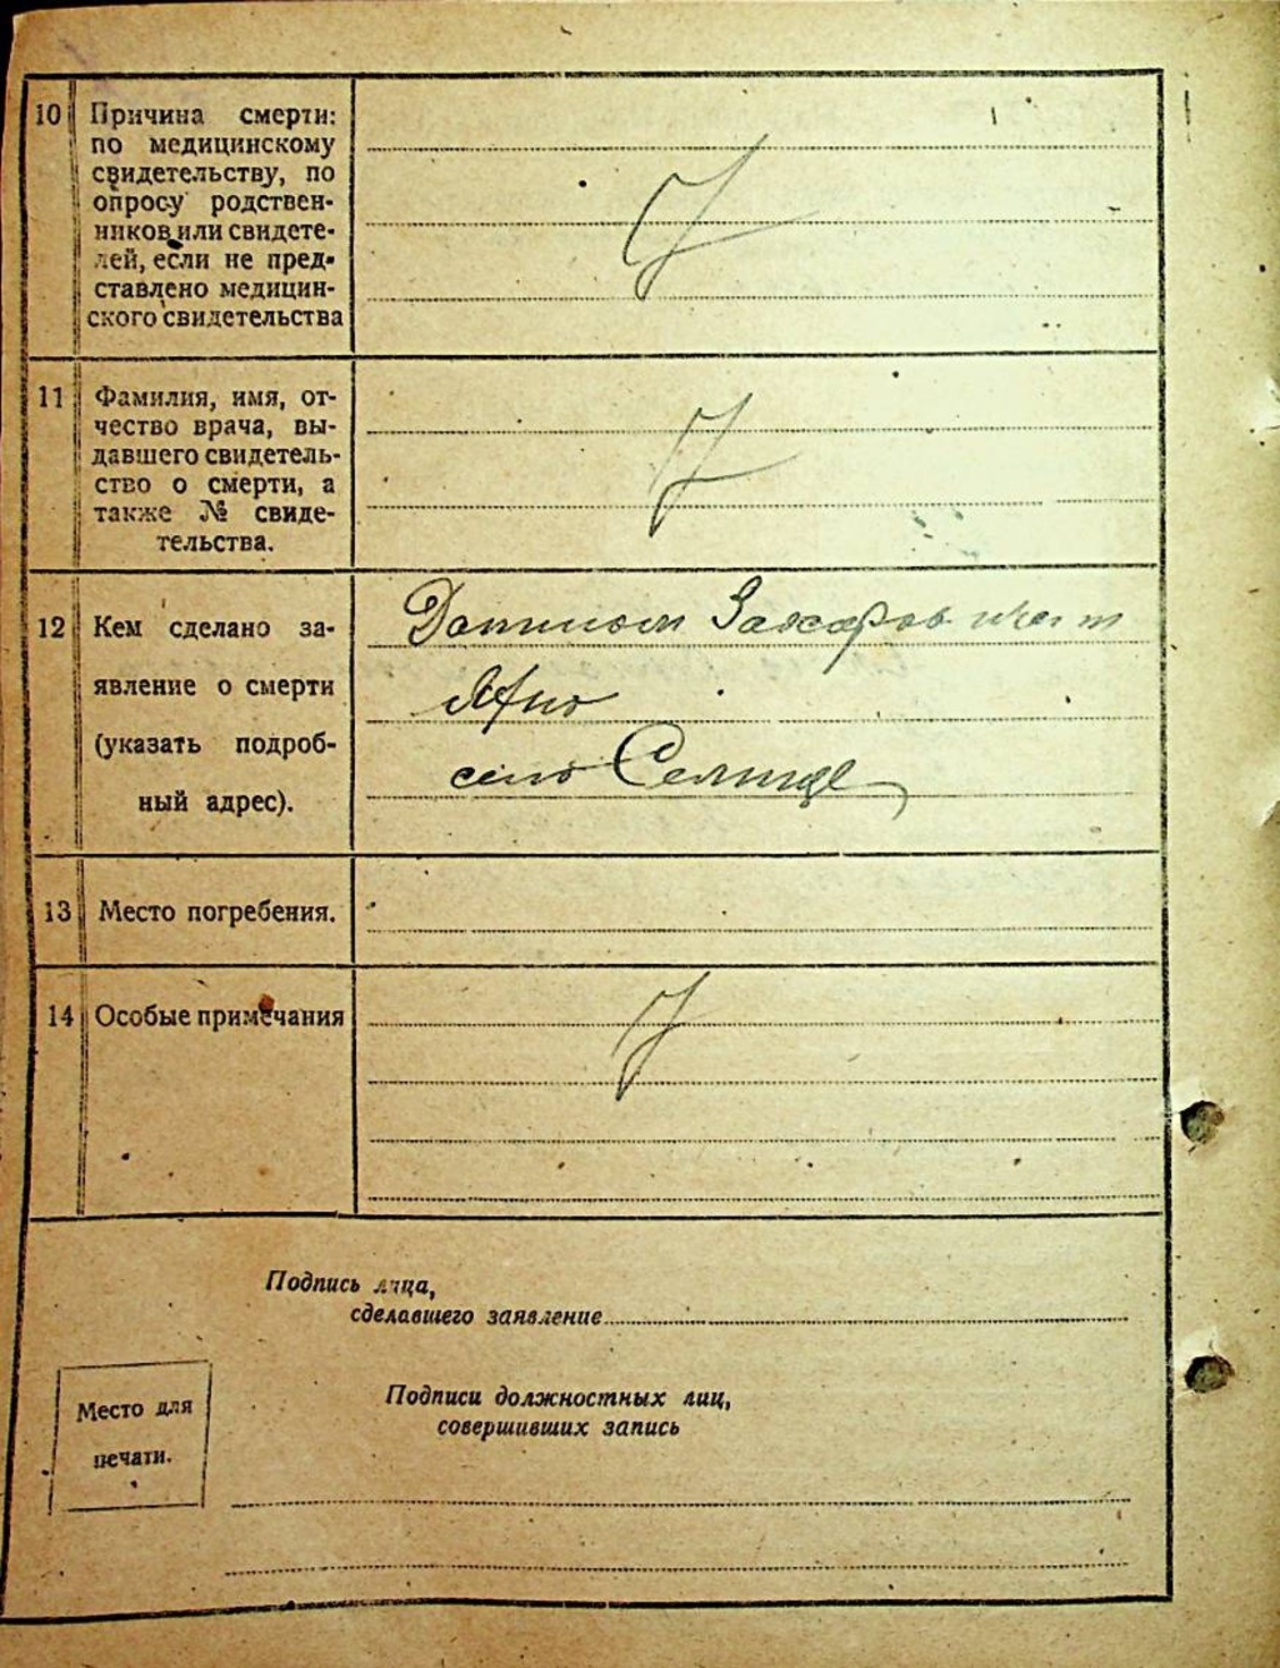 10 Причина смерти:
по медицинскому
свидетельству, по
опросу родствен-
ников или свидете-
лей, если не пред-
ставлено медицин-
ского свидетельства
11 Фамилия, имя, от-
чество врача, вы-
давшего свидетель-
ство о смерти, а
также № свиде-
тельства.
12 Кем сделано за-
явление о смерти
(указать подроб-
ный адрес).
Захаров
село Селище
13 Место погребения.
14 Особые примечания
Подпись лица,
сделавшего заявление
Место для
печати.
Подписи должностных лиц,
совершивших запись